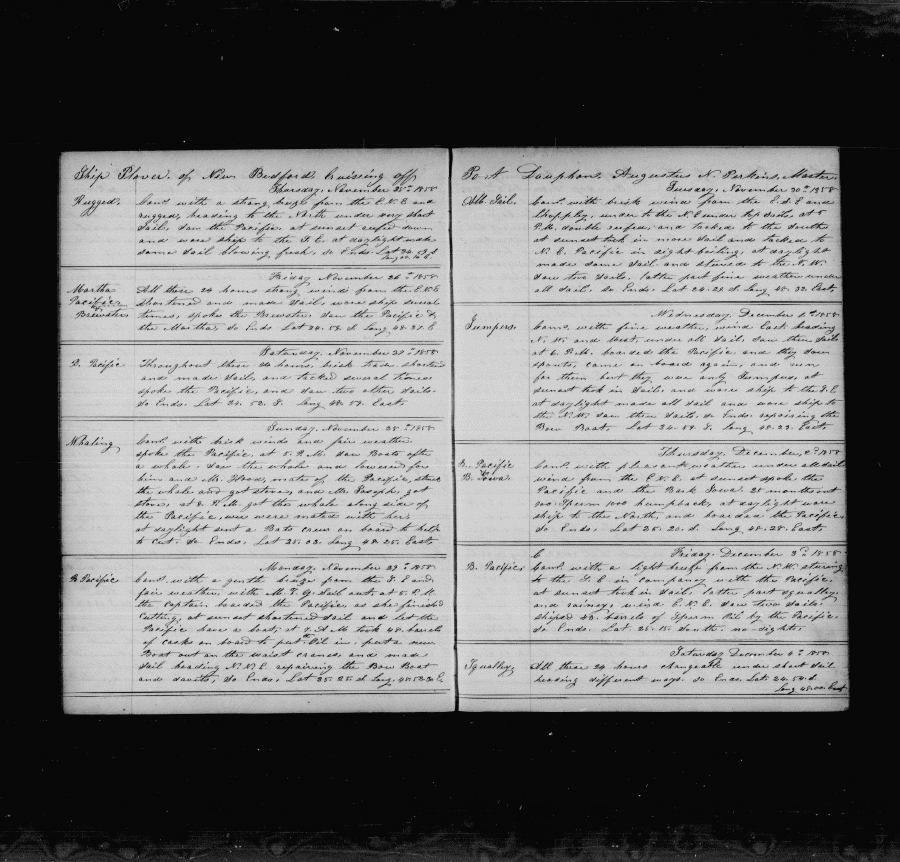 Ship Plover of New Bedford Cruising off
Thursday, November 25th 1858
Rugged, Com. with a strong breeze from the E.N.E and
rugged, heading to the North under very short
sail, saw the Pacific, at sunset reefed down
and wore ship to the S.E. at daylight made
some sail blowing fresh, so Ends. Lat 24.
Friday November 26th 1858
Martha
Pacific
Brewster
All these 24 hours strong winds from the E.N.E
shortened and made sail, wore ship several
times, spoke the Brewster, saw the Pacific &
the Martha, So Ends Lat 24.59. S Long 48.21 E
Saturday, November 27th 1858
S. Pacific Throughout these 24 hours, brisk trade shortend
and made sail, and tacked several times
spoke the Pacific, and saw two other sails.
So Ends. Lat 24. 52. S. Long 48. 59. East
Sunday, November 28th 1858
Whaling Com. with brisk winds and fair weather
spoke the Pacific, at 5. P.M. saw Boats after
a whale. saw the whale and lowered for
him and Mr. Wood, mate of the Pacific, struck
the whale and got stove, and Mr. Joseph, got
stove, at 8. P.M. got the whale along side of
the Pacific, we were mated with her.
at daylight sent a Boats crew on board to help
to cut. So Ends, Lat 25. 02. Long 48. 25. East
Monday, November 29th 1858
B Pacific Com. with a gentle breeze from the S.E and
fair weather, with M. T. G. Sail out, at 5 P.M
the Captain boarded the Pacific, as she finished
cutting, at sunset shortened sail and let the
Pacific have a boat, at 7. A.M took 48 barels
of casks on board to put the Oil in. put a new
Boat out on the waist cranes and made
sail heading N.N.E. repairing the Bow Boat
and davits, So Ends, Lat 25. 25. S Long. 48.52 E.
Port Dauphon, Augustus N. Perkins, Master
Tuesday, November 30th 1858
All Sail. Com. with brisk wind from the E.S.E and
Choppy, under to the N.E under top sails, at 5
P.M. double reefed, and tacked to the South,
at sunset took in more sail and tacked to
N. E. Pacific in sight boiling, at daylight
made some sail and steered to the N.W.
Saw two sails, latter part fine weather under
all sail. So Ends. Lat 24. 29. S Long 48. 32. East
Wednesday, December 1st 1858
Jumpers. Com. with fine weather, wind East heading
N. W. and West, under all sail, saw three sails
at 6. P.M. boarded the Pacific and they saw
spouts, came on board again, and run
for them but they was only Jumpers, at
sunset took in sail, and wore ship to the S.E
at daylight made all sail and wore ship to
the N.W. saw three sails. So Ends. repairing the
Bow Boat Lat 24. 59. S. Long 48. 23. East
Thursday, December, 2d 1858
S. Pacific
B. Iowa.
Com. with pleasant weather under all sail
wind from the E.N.E. at sunset spoke the
Pacific and the Bark Iowa. 28 months out
Sperm 1000 humpback, at daylight wore
ship to the North and boarded the Pacific
So Ends. Lat 25. 20. S. Long 48. 28. East
Friday. December 3d 1858
B. Pacific Com. with a light breeze from the N.W. steering
to the S.E in company with the Pacific,
at sunset took in sail, latter part squally,
and rainey, wind E.N.E. saw two sails.
shiped 43. barrels of Sperm Oil by the Pacific
So Ends. Lat. 25. 15. South. no sights.
Saturday, December 4th 1858
Squally, All these 24 hours changeable under short sail
heading different ways. So Ends. Lat. 24. 54. S.
Long 48.00 East